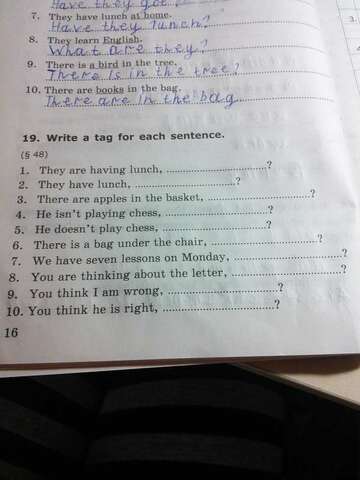 Have they got ?
7. They have lunch at home.
Have they lunch?
8. They learn English.
What are they?
9. There is a bird in the tree.
There is in the tree?
10. There are books in the bag.
There are in the bag
19. Write a tag for each sentence.
(§ 48)
1. They are having lunch, ..............................?
2. They have lunch, ..............................?
3. There are apples in the basket, ..............................?
4. He isn't playing chess, ..............................?
5. He doesn't play chess, ..............................?
6. There is a bag under the chair, ..............................?
7. We have seven lessons on Monday, ..............................?
8. You are thinking about the letter, ..............................?
9. You think I am wrong, ..............................?
10. You think he is right, ..............................?
16